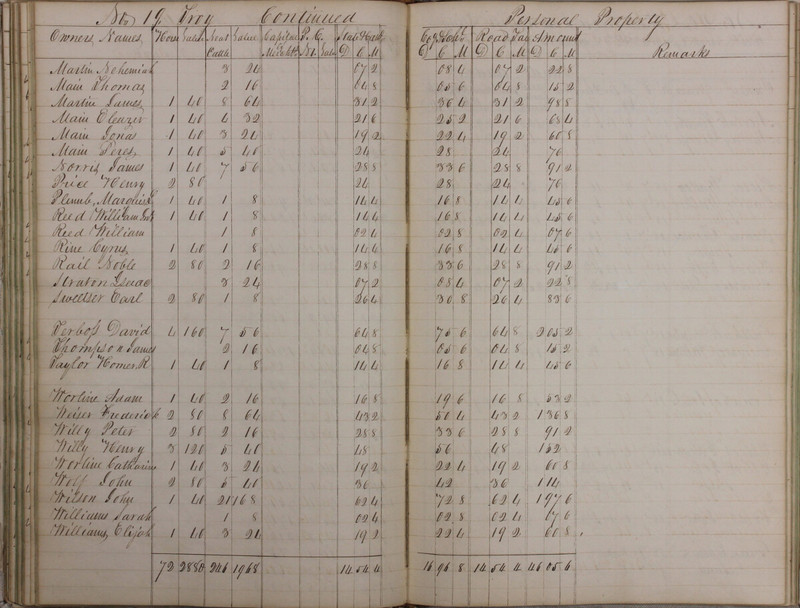 No 19 Troy Continued Personal Property
Owners Names Horses Value Neat Cattle Value Capital Merch't P.C. No. Value State & Canal D C M Coy & School D C M Road Tax D C M Amount D C M Remarks
Martin Nehemiah 3 24 07 2 08 4 07 2 22 8
Main Thomas 2 16 04 8 05 6 04 8 15 2
Martin James 1 40 8 64 31 2 36 4 31 2 98 8
Main Eleazer 1 40 4 32 21 6 25 2 21 6 68 4
Main Jonas 1 40 3 24 19 2 22 4 19 2 60 8
Main Peres 1 40 5 40 24 28 24 76
Norris James 1 40 7 56 28 8 33 6 28 8 91 2
Price Henry 2 80 24 28 24 76
Plumb, Marquis 1 40 1 8 14 4 16 8 14 4 45 6
Reed William 1 40 1 8 14 4 16 8 14 4 45 6
Reed William 1 8 02 4 02 8 02 4 07 6
Rine Cyrus 1 40 1 8 14 4 16 8 14 4 45 6
Rail Noble 2 80 2 16 28 8 33 6 28 8 91 2
Straton Isaac 3 24 07 2 08 4 07 2 22 8
Sweetser Earl 2 80 1 8 26 4 30 8 26 4 83 6
Terboss David 4 160 7 56 64 8 75 6 64 8 2 05 2
Thompson James 2 16 04 8 05 6 04 8 15 2
Taylor Homer R 1 40 1 8 14 4 16 8 14 4 45 6
Worline Adam 1 40 2 16 16 8 19 6 16 8 53 2
Weiser Frederick 2 80 8 64 43 2 50 4 43 2 1 36 8
Willy Peter 2 80 2 16 28 8 33 6 28 8 91 2
Willy Henry 3 120 5 40 48 56 48 1 52
Worline Catharine 1 40 3 24 19 2 22 4 19 2 60 8
Wolf John 2 80 5 40 36 42 36 1 14
Wilson John 1 40 21 168 62 4 72 8 62 4 1 97 6
Williams Sarah 1 8 02 4 02 8 02 4 07 6
Williams, Elijah 1 40 3 24 19 2 22 4 19 2 60 8
72 2880 246 1968 14 54 4 16 96 8 14 54 4 46 05 6